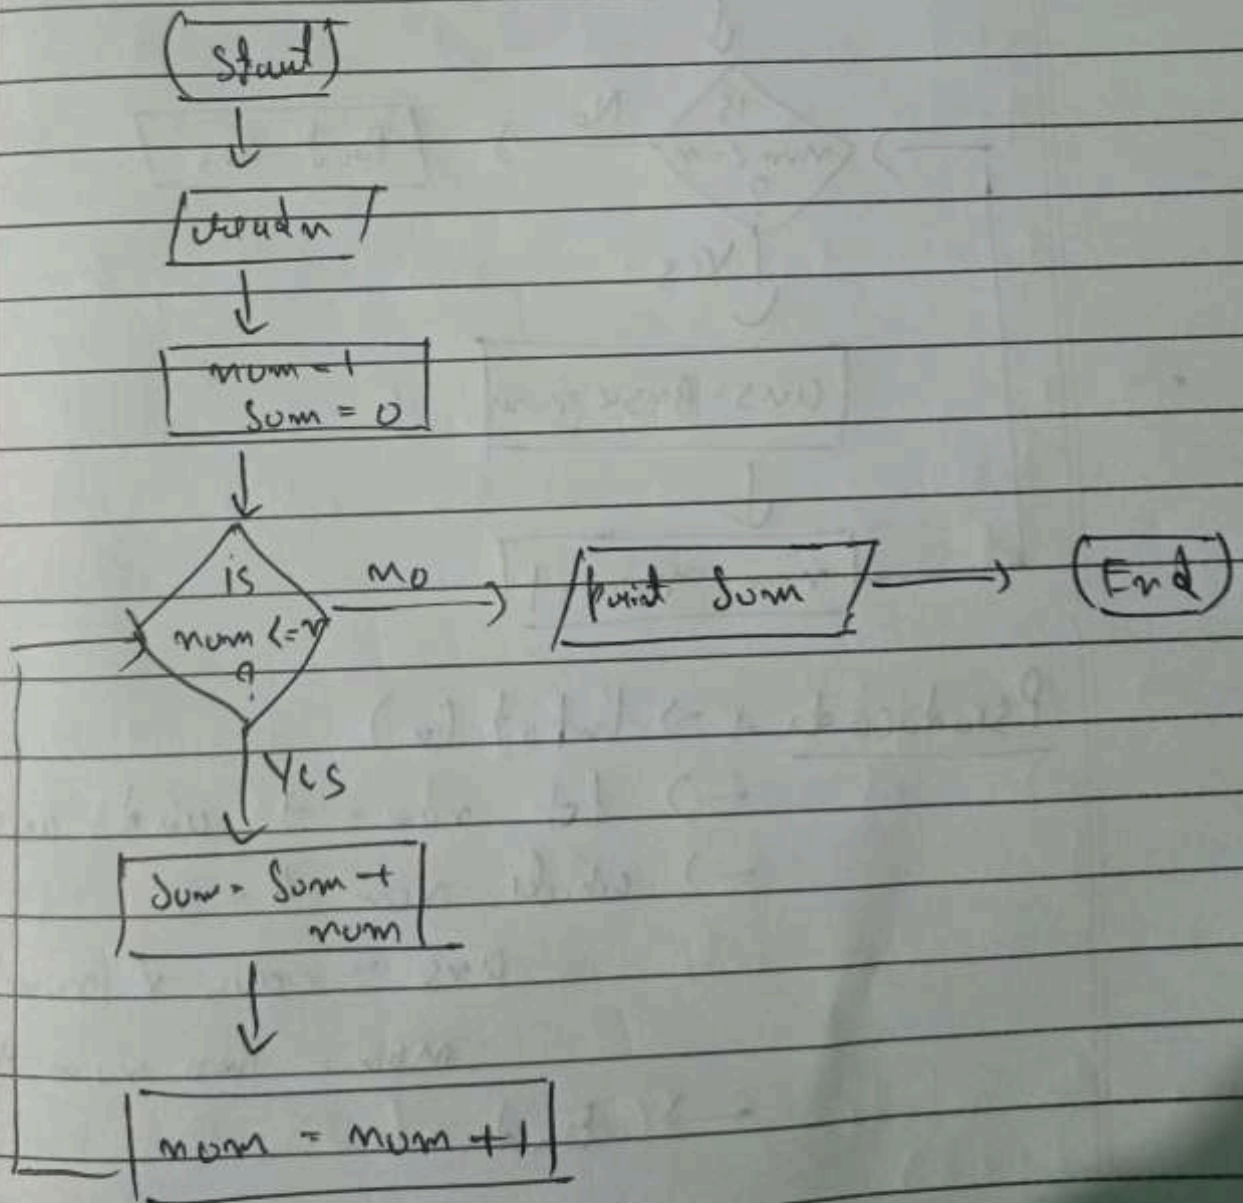 Start
read n
num = 1
Sum = 0
is
num <= n
?
No
Print Sum
End
Yes
Sum = Sum +
num
num = num + 1